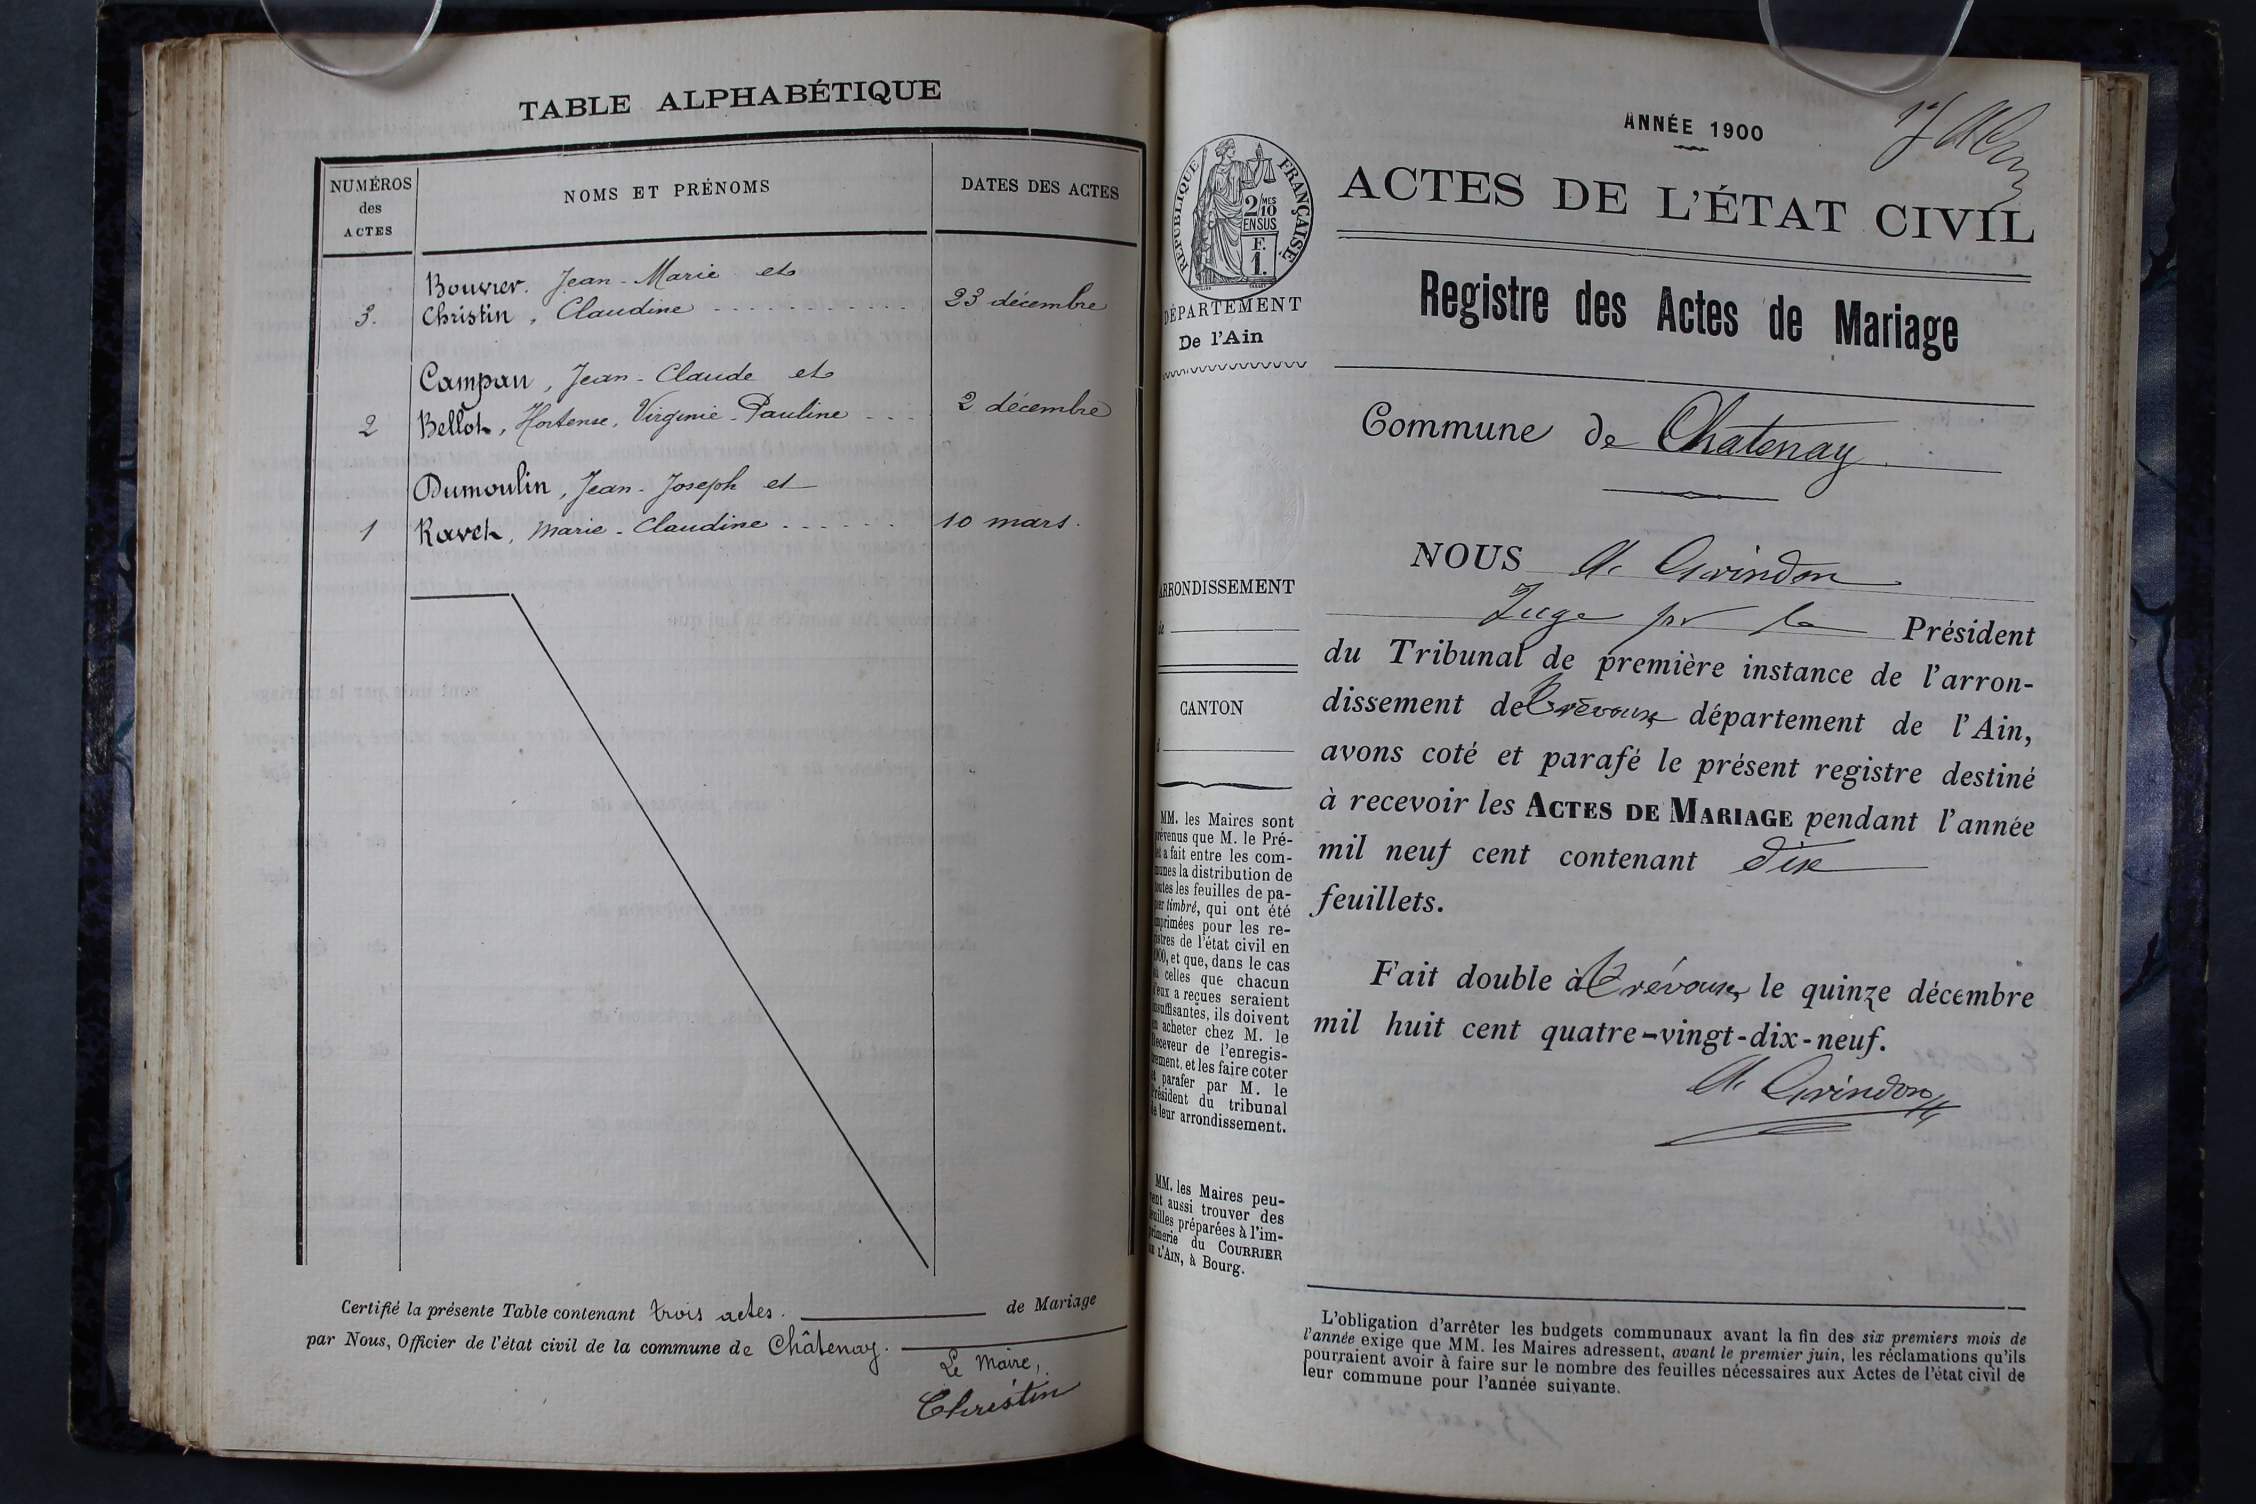 TABLE ALPHABÉTIQUE
NUMÉROS
des
ACTES
NOMS ET PRÉNOMS
DATES DES ACTES
Bouvier. Jean-Marie et
3. Christin, Claudine 23 décembre
Campan, Jean-Claude et
2 Bellot, Hortense, Virginie-Pauline 2 décembre
Dumoulin, Jean-Joseph et
1 Ravet, Marie-Claudine 10 mars.
Certifié la présente Table contenant trois actes. de Mariage
par Nous, Officier de l'état civil de la commune de Châtenay.
Le Maire,
Christin
ANNÉE 1900
RÉPUBLIQUE FRANÇAISE
2/10 MES
EN SUS
F.
1.
ACTES DE L'ÉTAT CIVIL
DÉPARTEMENT
De l'Ain
Registre des Actes de Mariage
Commune de Chatenay
ARRONDISSEMENT
de
CANTON
d
MM. les Maires sont
prévenus que M. le Pré-
fet a fait entre les com-
munes la distribution de
toutes les feuilles de pa-
pier timbré, qui ont été
imprimées pour les re-
gistres de l'état civil en
1900, et que, dans le cas
où celles que chacun
d'eux a reçues seraient
insuffisantes, ils doivent
en acheter chez M. le
Receveur de l'enregis-
trement, et les faire coter
et parafer par M. le
Président du tribunal
de leur arrondissement.
MM. les Maires peu-
vent aussi trouver des
feuilles préparées à l'im-
primerie du COURRIER
DE L'AIN, à Bourg.
NOUS
Juge pr le Président
du Tribunal de première instance de l'arron-
dissement de Trévoux département de l'Ain,
avons coté et parafé le présent registre destiné
à recevoir les ACTES DE MARIAGE pendant l'année
mil neuf cent contenant dix
feuillets.
Fait double à Trévoux, le quinze décembre
mil huit cent quatre-vingt-dix-neuf.
L'obligation d'arrêter les budgets communaux avant la fin des six premiers mois de
l'année exige que MM. les Maires adressent, avant le premier juin, les réclamations qu'ils
pourraient avoir à faire sur le nombre des feuilles nécessaires aux Actes de l'état civil de
leur commune pour l'année suivante.